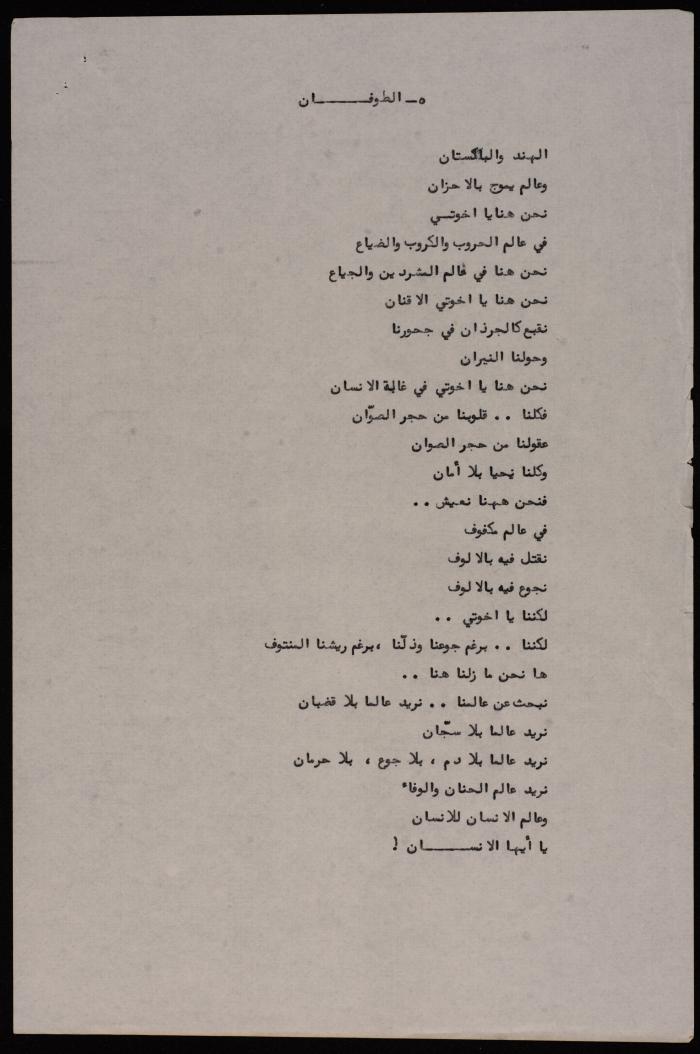 ٥ــ الطوفـــــــان
الهند والباكستان
وعالم يموج بالاحزان
نحن هنا يا اخوتـــي
في عالم الحروب والكروب والضياع
نحن هنا في عالم المشردين والجياع
نحن هنا يا اخوتي الاقنان
نقبع كالجرذان في جحورنا
وحولنا النيران
نحن هنا يا اخوتي في غابة الانسان
فكلنا .. قلوبنا من حجر الصوّان
عقولنا من حجر الصوان
وكلنا نحيا بلا أمان
فنحن ههنا نعيش ..
في عالم مكفوف
نقتل فيه بالالوف
نجوع فيه بالالوف
لكننا يا اخوتي ..
لكننا .. برغم جوعنا وذلّنا ، برغم ريشنا المنتوف
ها نحن ما زلنا هنا ..
نبحث عن عالمنا .. نريد عالما بلا قضبان
نريد عالما بلا سجّان
نريد عالما بلا دم ، بلا جوع ، بلا حرمان
نريد عالم الحنان والوفاء
وعالم الانسان للانسان
يا أيها الانســـــــان !